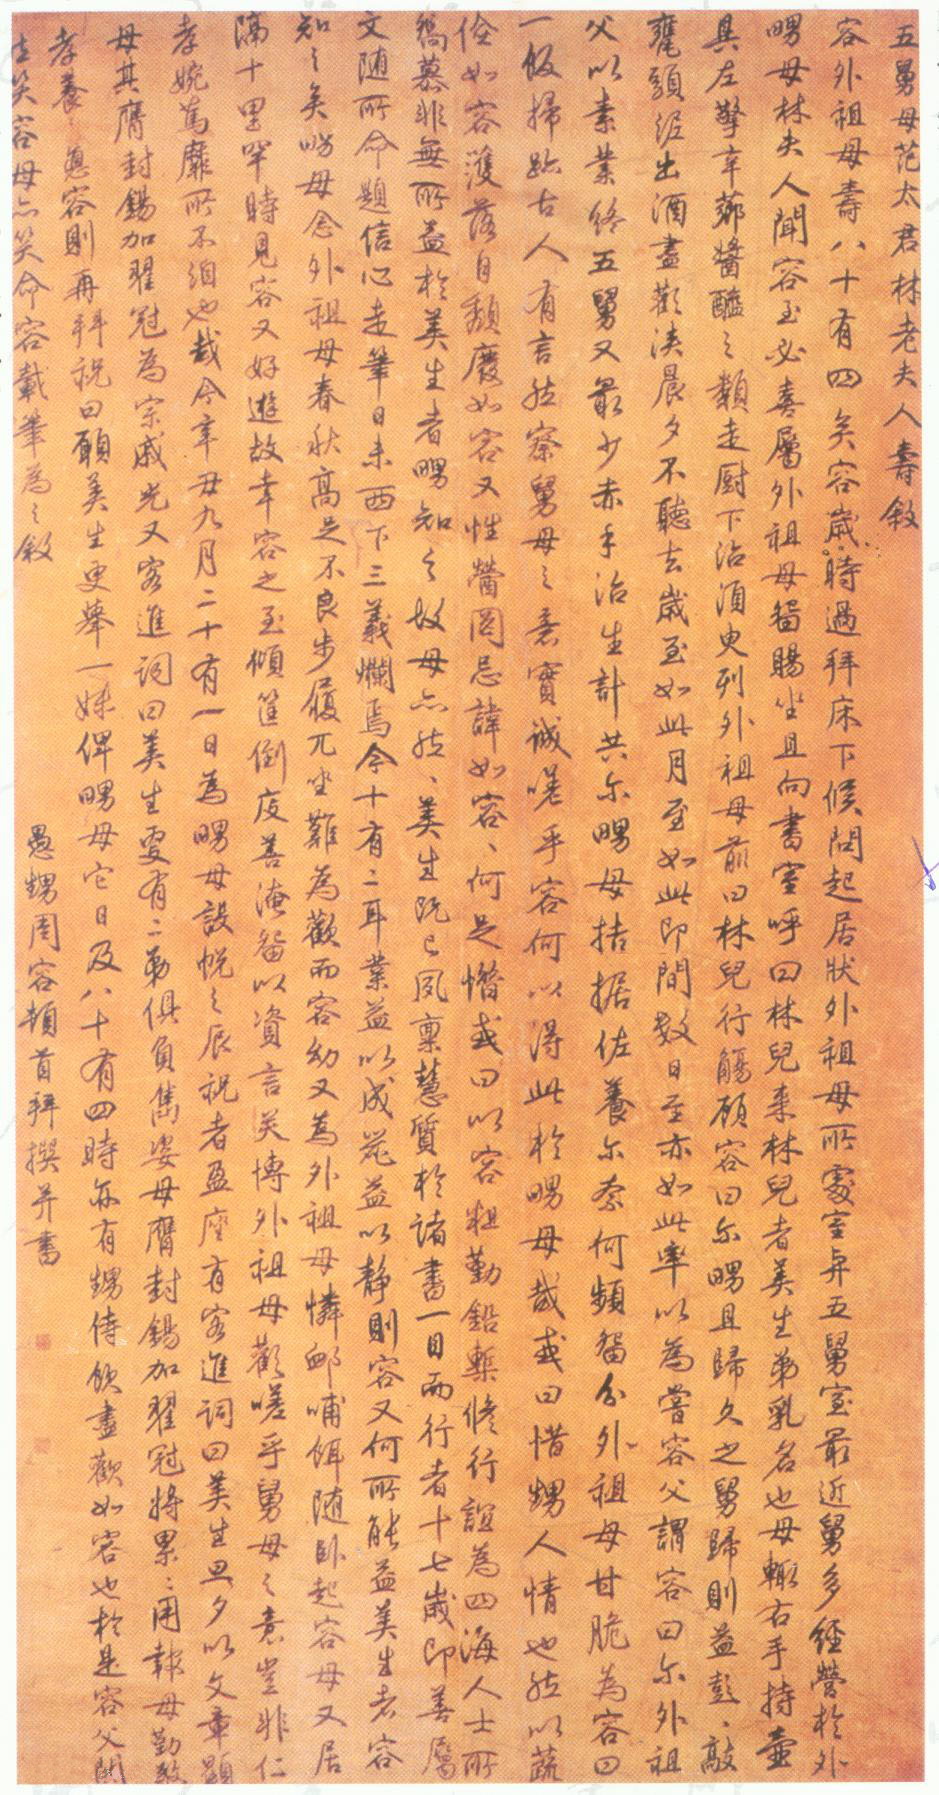 五舅母范太君林老夫人壽敘
容外祖母壽八十有四矣容歲時過拜床下候問起居狀外祖母所處室與五舅室最近舅多經營於外
甥母林夫人聞容至必喜屬外祖母留賜坐且向書室呼曰林兒來林兒者美生弟乳名也母輒右手持壺
具左擎辛薌醬醯之類走厨下治須臾列外祖母前曰林兒行觴顧容曰尔甥且歸久之舅歸則益彭彭敲
甕頭經出酒盡歡浹晨夕不聽去歲至如此月至如此即間數日至亦如此率以為嘗容父謂容曰尔外祖
父以素業終五舅又最少赤手治生計共尔甥母拮据佐養尔奈何頻留分外祖母甘脆為容曰
一飯掃跡古人有言然察舅母之意實誠嗟乎容何以得此於甥母哉或曰惜甥人情也然以蔬
侩如容濩落自頹廢如容又性嗇罔忌諱如容、何足憎或曰以容粗勤鉛槧修行誼為四海人士所
縞慕非無所益於美生者甥知之故母亦然、美生既已夙稟慧質於諸書一目而行者十七歲即善屬
文随所命題信心走筆日未西下三義爛焉今十有二耳業益以成器益以静則容又何所能益美生者容
知之矣甥母念外祖母春秋高足不良步履兀坐難為歡而容幼又為外祖母憐卹哺餌随卧起容母又居
隔十里罕時見容又好遊故幸容之至傾筐倒庋善淹留以資言笑博外祖母歡嗟乎舅母之意豈非仁
孝婉篤靡所不洎也哉今辛丑九月二十有一日為甥母設帨之辰祝者盈座有客進詞曰美生旦夕以文章顯
母其膺封錫加翟冠為宗戚光又客進詞曰美生更有二弟俱負雋姿母膺封錫加翟冠將累二用報母勤敬
孝養之意容則再拜祝曰願美生更舉一妹俾甥母它日及八十有四時亦有甥侍飲盡歡如容也於是容父聞
之笑容母亦笑命容載筆為之敘
愚甥周容頓首拜撰并書